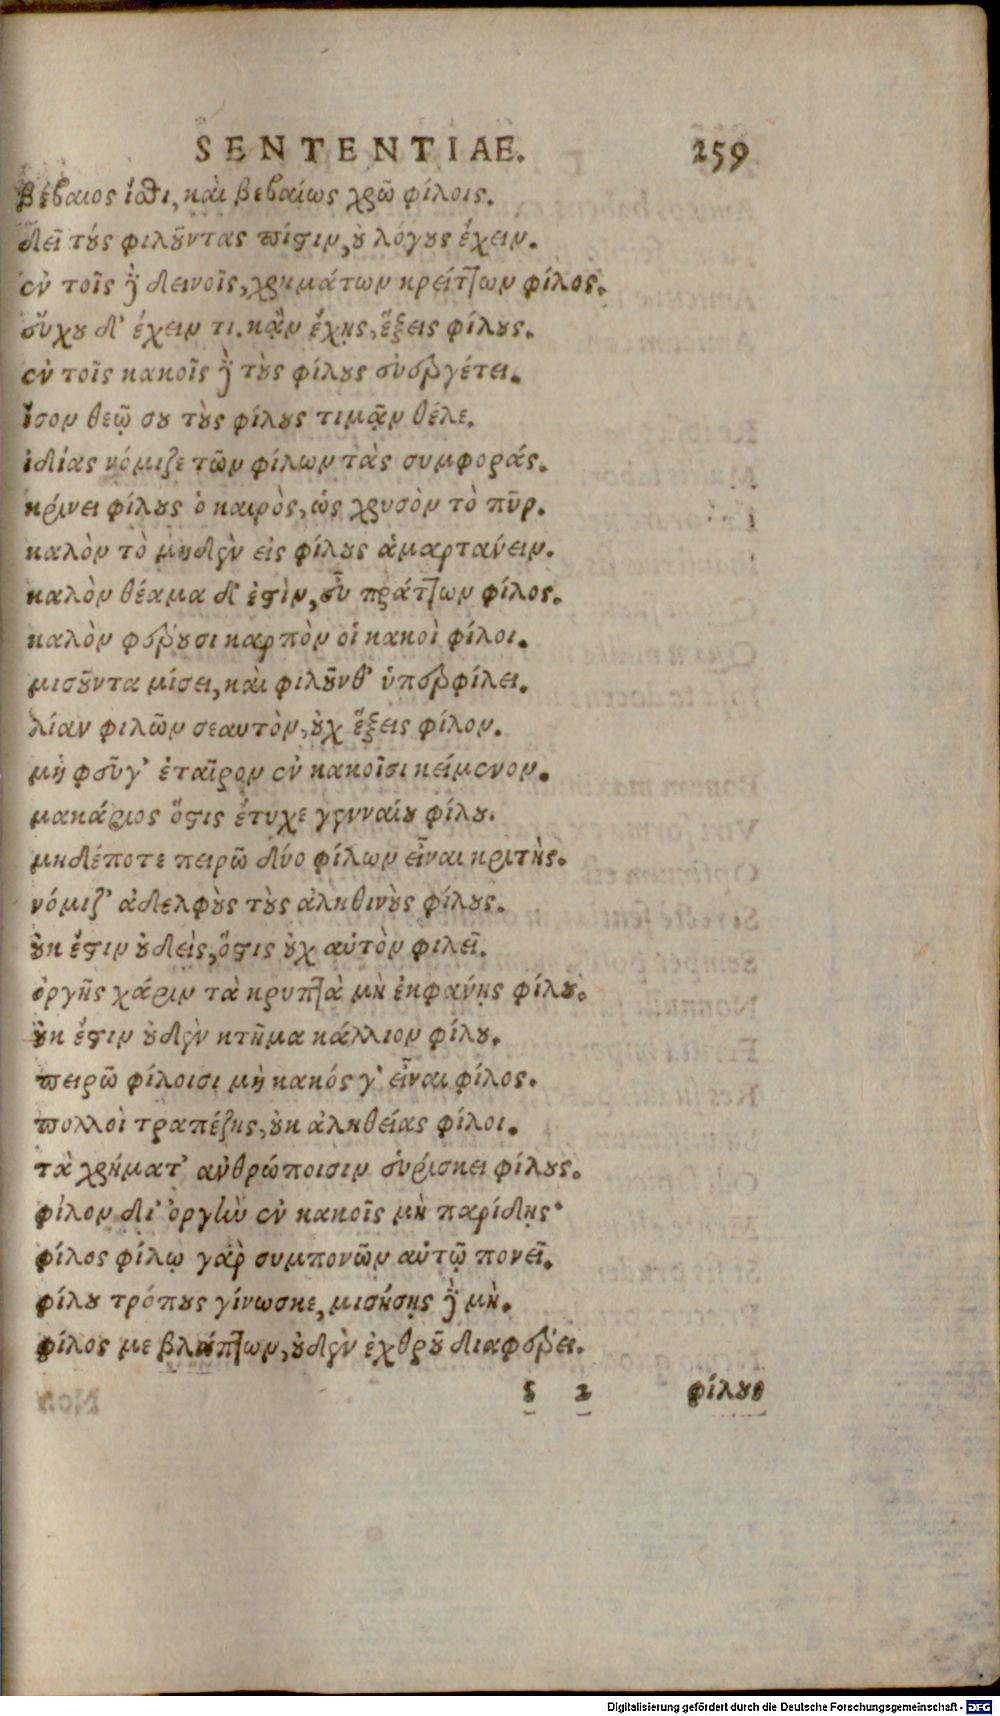 SENTENTIAE. 259
βέβαιος ἴσθι, καὶ βεβαίως χρῶ φίλοις.
δεῖ τούς φιλοῦντας πίστιν, οὐ λόγους ἔχειν.
ἐν τοῖς δὲ δεινοῖς, χρημάτων κρείττων φίλος.
εὔχου δ' ἔχειν τι. κᾂν ἔχῃς, ἕξεις φίλους.
ἐν τοῖς κακοῖς δὲ τοὺς φίλους εὐεργέτει.
ἴσον θεῷ σου τοὺς φίλους τιμᾷν θέλε.
ἰδίας νόμιζε τῶν φίλων τὰς συμφοράς.
κρίνει φίλους ὁ καιρὸς, ὡς χρυσὸν τὸ πῦρ.
καλὸν τὸ μηδὲν εἰς φίλους ἁμαρτάνειν.
καλὸν θέαμα δ' ἐστὶν, εὖ πράττων φίλος.
καλὸν φέρουσι καρπὸν οἱ κακοὶ φίλοι.
μισοῦντα μίσει, καὶ φιλοῦνθ' ὑπερφίλει.
λίαν φιλῶν σεαυτὸν, οὐχ ἕξεις φίλον.
μὴ φεῦγ' ἑταῖρον ἐν κακοῖσι κείμενον.
μακάριος ὅστις ἔτυχε γενναίου φίλου.
μηδέποτε πειρῶ δύο φίλων εἶναι κριτὴς.
νόμιζ' ἀδελφοὺς τοὺς ἀληθινοὺς φίλους.
οὐκ ἔστιν οὐδεὶς, ὅστις οὐχ αὑτὸν φιλεῖ.
ὀργῆς χάριν τὰ κρυπτὰ μὴ ἐκφάνῃς φίλου.
οὐκ ἔστιν οὐδὲν κτῆμα κάλλιον φίλου.
πειρῶ φίλοισι μὴ κακός γ' εἶναι φίλος.
πολλοὶ τραπέζης, οὐκ ἀληθείας φίλοι.
τὰ χρήματ' ἀνθρώποισιν εὑρίσκει φίλους.
φίλον δι' ὀργὴν ἐν κακοῖς μὴ παρίδῃς·
φίλος φίλῳ γὰρ συμπονῶν αὑτῷ πονεῖ.
φίλου τρόπους γίνωσκε, μισήσῃς δὲ μὴ.
φίλος με βλάπτων, οὐδὲν ἐχθροῦ διαφέρει.
s 2 φίλους
Digitalisierung gefördert durch die Deutsche Forschungsgemeinschaft - DFG